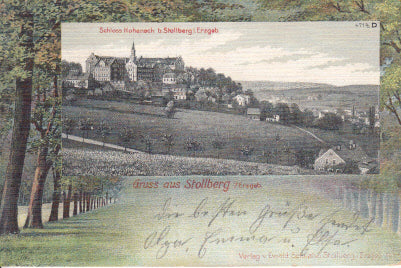 Schloss Hoheneck b. Stollberg i. Erzgeb.
4718 D
Gruss aus Stollberg i/Erzgeb.
die besten Grüße sendet
Olga, Emma u.
Verlag v. Stollberg i. Erzgeb.